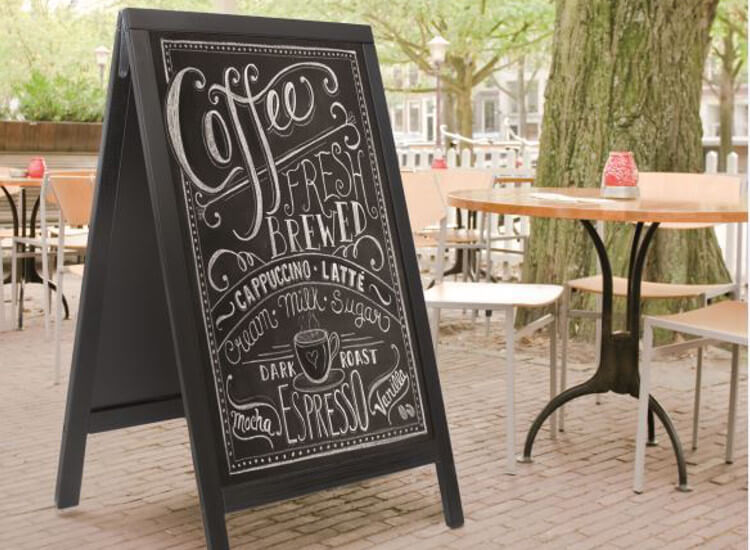 Coffee
FRESH
BREWED
CAPPUCCINO · LATTÉ
Cream · Milk · Sugar
DARK ROAST
Mocha ESPRESSO Vanilla